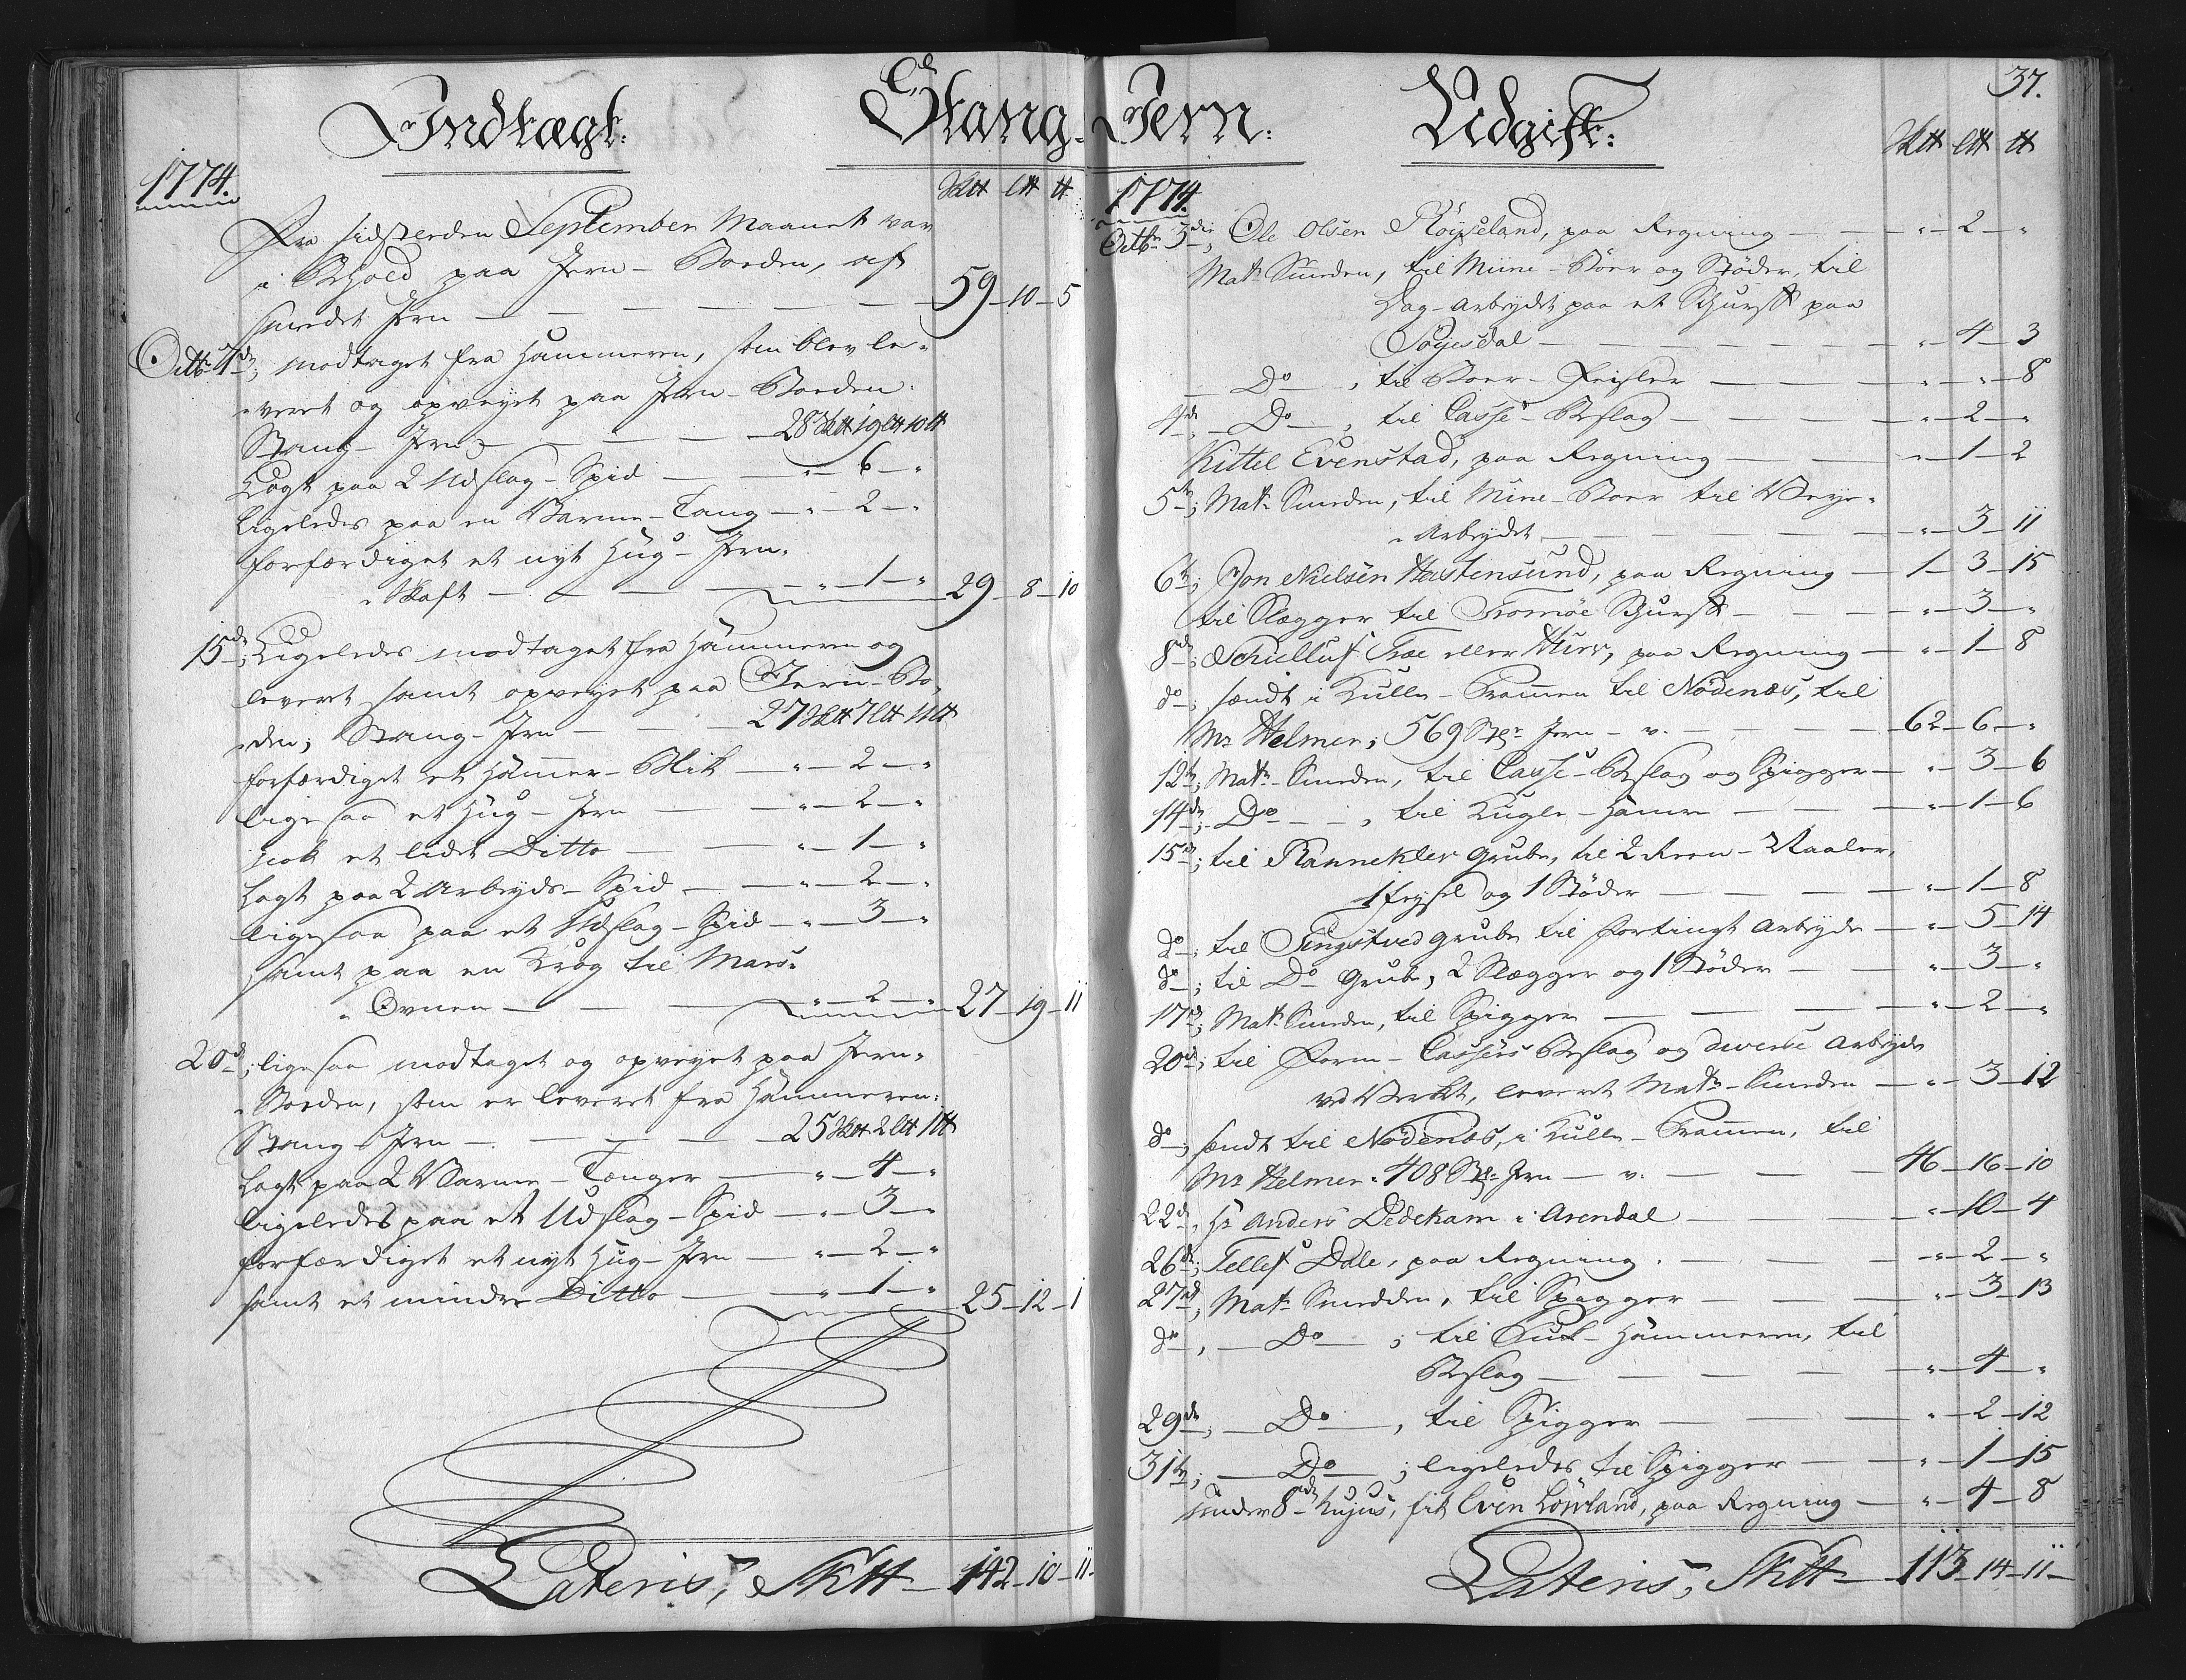 Indtægt:
Stang-
1774.
Sk℔ L℔ ℔.
Fra sidstleeden September Maanet var
i Behold paa Jern-Boeden, af
smedet Jern — 59 — 10 — 5
Octbr 7de; modtaget fra Hammeren, som blev le-
veret og opveyet paa Jern-Boeden:
Stang-Jern — 28 Sk℔ 19 L℔ 10 ℔
Lagt paa 2 Udslag-Spid — " — 6 — "
ligeledes paa en Varme-Tang — " — 2 — "
forfærdiget et nyt Hug-Jern-
Skaft — " — 1 — " 29 — 8 — 10
15de; Ligeledes modtaget fra Hammeren og
leveret samt opveyet paa Jern-Bo-
den; Stang-Jern — 27 Sk℔ 7 L℔ 11 ℔
forfærdiget et Hammer-Blik — " — 2 — "
ligesaa et Hug-Jern — " — 2 — "
nok et lidet Ditto — " — 1 — "
Lagt paa 2 Arbeyds-Spid — " — 2 — "
ligesaa paa et Udslag-Spid — " — 3 — "
samt paa en Krog til Mas-
Ovnen — " — 2 — " 27 — 19 — 11
20de; ligesaa modtaget og opveyet paa Jern-
Boeden, som er leveret fra Hammeren:
Stang-Jern — 25 Sk℔ 2 L℔ 1 ℔
Lagt paa 2 Varme-Tænger — " — 4 — "
ligeledes paa et Udslag-Spid — " — 3 — "
forfærdiget et nyt Hug-Jern — " — 2 — "
samt et mindre Ditto — " — 1 — " 25 — 12 — 1
Lateris, Sk℔ — 142 — 10 — 11
37.
Jern.
Udgift:
Sk℔ L℔ ℔
1774.
Octbr 3die; Ole Olsen Røyseland, paa Regning — " — 2 — "
Mats Smeden, til Mine-Boer og Støder, til
Dag-Arbeydet paa et Schurff paa
Søyesdal — " — 4 — 3
Do, til Boer-Feisler — " — " — 8
4de, Do, til Casse-Beslag — " — 2 — "
Kittel Evenstad, paa Regning — " — 1 — 2
5te; Mats Smeden, til Mine-Boer til Veye-
Arbeydet — " — 3 — 11
6te; Jon Nielsen Hastensund, paa Regning — 1 — 3 — 15
til Slægger til Tromøe Schurff — " — 3 — "
8de; Schielluf Træe eller Myre, paa Regning — " — 1 — 8
do; sendt i Kulle-Prammen til Nødenæs, til
Mr Helmer; 569 Stgr Jern — v. — 62 — 6 — "
12te; Mats Smeden, til Casse-Beslag og Spigger — " — 3 — 6
14de; Do, til Kugle-Hammer — " — 1 — 6
15de; til Kannekler Grube, til 2 Kron-Naaler,
1 feysel og 1 Støder — " — 1 — 8
do; til Tingstved Grube til fortingt Arbeyde — " — 5 — 14
do; til Do Grube, 2 Slægger og 1 Støder — " — 3 — "
17de; Mats Smeden, til Spigger — " — 2 — "
20de; til Form-Cassers Beslag og diverse Arbeyde
ved Verket, leveret Mats Smeden — " — 3 — 12
do; sendt til Nødenæs, i Kulle-Prammen, til
Mr Helmer. 408 Stgr Jern — v. — 46 — 16 — 10
22de, Hr Anders Dedekam i Arendal — " — 10 — 4
26de; Tellef Dale, paa Regning. — " — 2 — "
27de, Mats Smedden, til Spigger — " — 3 — 13
do, Do; til Hammeren, til
Beslag — " — 4 — "
29de; Do, til Spigger — " — 2 — 12
31te; Do; ligeledes til Spigger — " — 1 — 15
under 8de hujus, fik Even Løvland, paa Regning — " — 4 — 8
Lateris, Sk℔ — 113 — 14 — 11